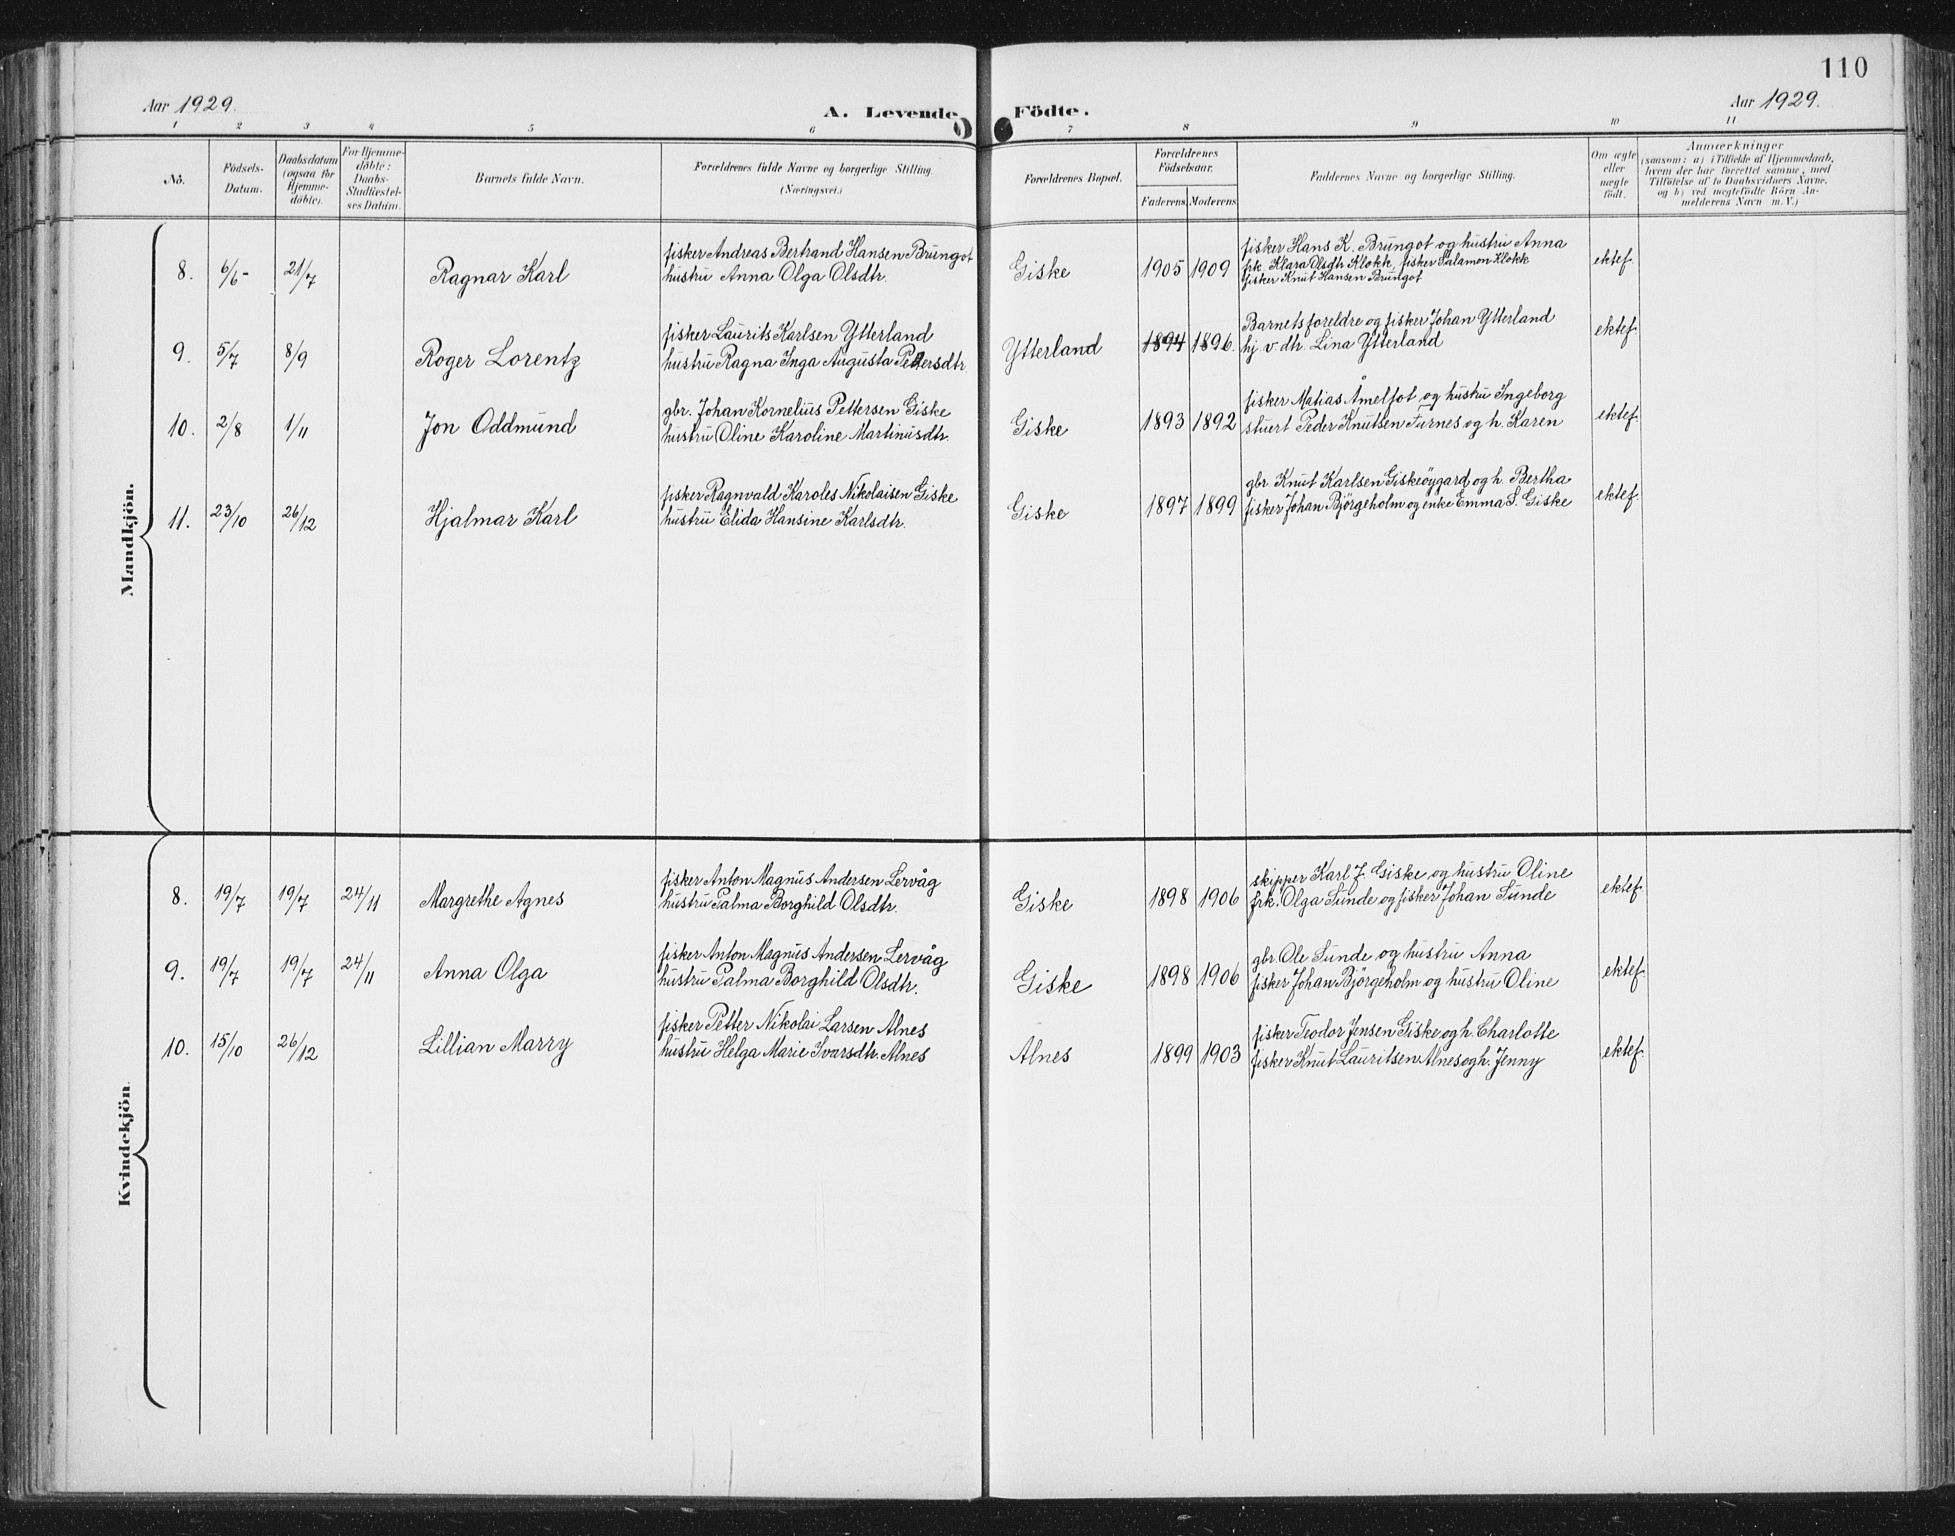 110
Aar 1929.
A. Levende
Födte.
Aar 1929.
1 2 3 4 5 6 7 8 9 10 11
No.
Födsels-
Datum.
Daabsdatum
(ogsaa for
Hjemme-
döbte).
For Hjemme-
döbte:
Daabs-
Stadfæstel-
ses Datum.
Barnets fulde Navn.
Forældrenes fulde Navne og borgerlige Stilling.
(Næringsvei.)
Forældrenes Bopæl.
Forældrenes
Födselsaar.
Faderens. Moderens.
Faddernes Navne og borgerlige Stilling.
Om ægte
eller
uægte
födt.
Anmærkninger
(saasom: a) i Tilfælde af Hjemmedaab,
hvem der har forrettet samme, med
Tilföielse af to Daabsvidners Navne,
og b) ved uægtefödte Börn An-
melderens Navn m. V.)
Mandkjön.
8. 6/6- 21/7 Ragnar Karl
fisker Andreas Bertrand Hansen Brungot
hustru Anna Olga Olsdtr.
Giske 1905 1909
fisker Hans K. Brungot og hustru Anna
frk. Klara Olsdtr Klokk, fisker Salamon Klokk
fisker Knut Hansen Brungot
ektef.
9. 5/7 8/9 Roger Lorentz
fisker Laurits Karlsen Ytterland
hustru Ragna Inga Augusta Pedersdtr.
Ytterland 1894 1896.
Barnets foreldre og fisker Johan Ytterland
hj v. dtr. Lina Ytterland
ektef.
10. 2/8 1/11 Jon Oddmund
gbr. Johan Kornelius Pettersen Giske
hustru Oline Karoline Martinusdtr.
Giske 1893 1892
fisker Matias Åmelfot og hustru Ingeborg
stuert Peder Knutsen Furnes og h. Karen
ektef.
11. 23/10 26/12 Hjalmar Karl
fisker Ragnvald Karoles Nikolaisen Giske
hustru Elida Hansine Karlsdtr.
Giske 1897 1899
gbr. Knut Karlsen Giskeöygard og h. Bertha
fisker Johan Björgeholm og enke Emma S. Giske
ektef.
Kvindekjön.
8. 19/7 19/7 24/11 Margrethe Agnes
fisker Anton Magnus Andersen Lervåg
hustru Palma Borghild Olsdtr.
Giske 1898 1906
skipper Karl J. Giske og hustru Oline
frk. Olga Sunde og fisker Johan Sunde
ektef.
9. 19/7 19/7 24/11 Anna Olga
fisker Anton Magnus Andersen Lervåg
hustru Palma Borghild Olsdtr.
Giske 1898 1906
gbr. Ole Sunde og hustru Anna
fisker Johan Björgeholm og hustru Oline
ektef.
10. 15/10 26/12 Lillian Marry
fisker Petter Nikolai Larsen Alnes
hustru Helga Marie Ivarsdtr. Alnes
Alnes 1899 1903
fisker Teodor Jensen Giske og h. Charlotte
fisker Knut Lauritsen Alnes og h. Jenny
ektef.